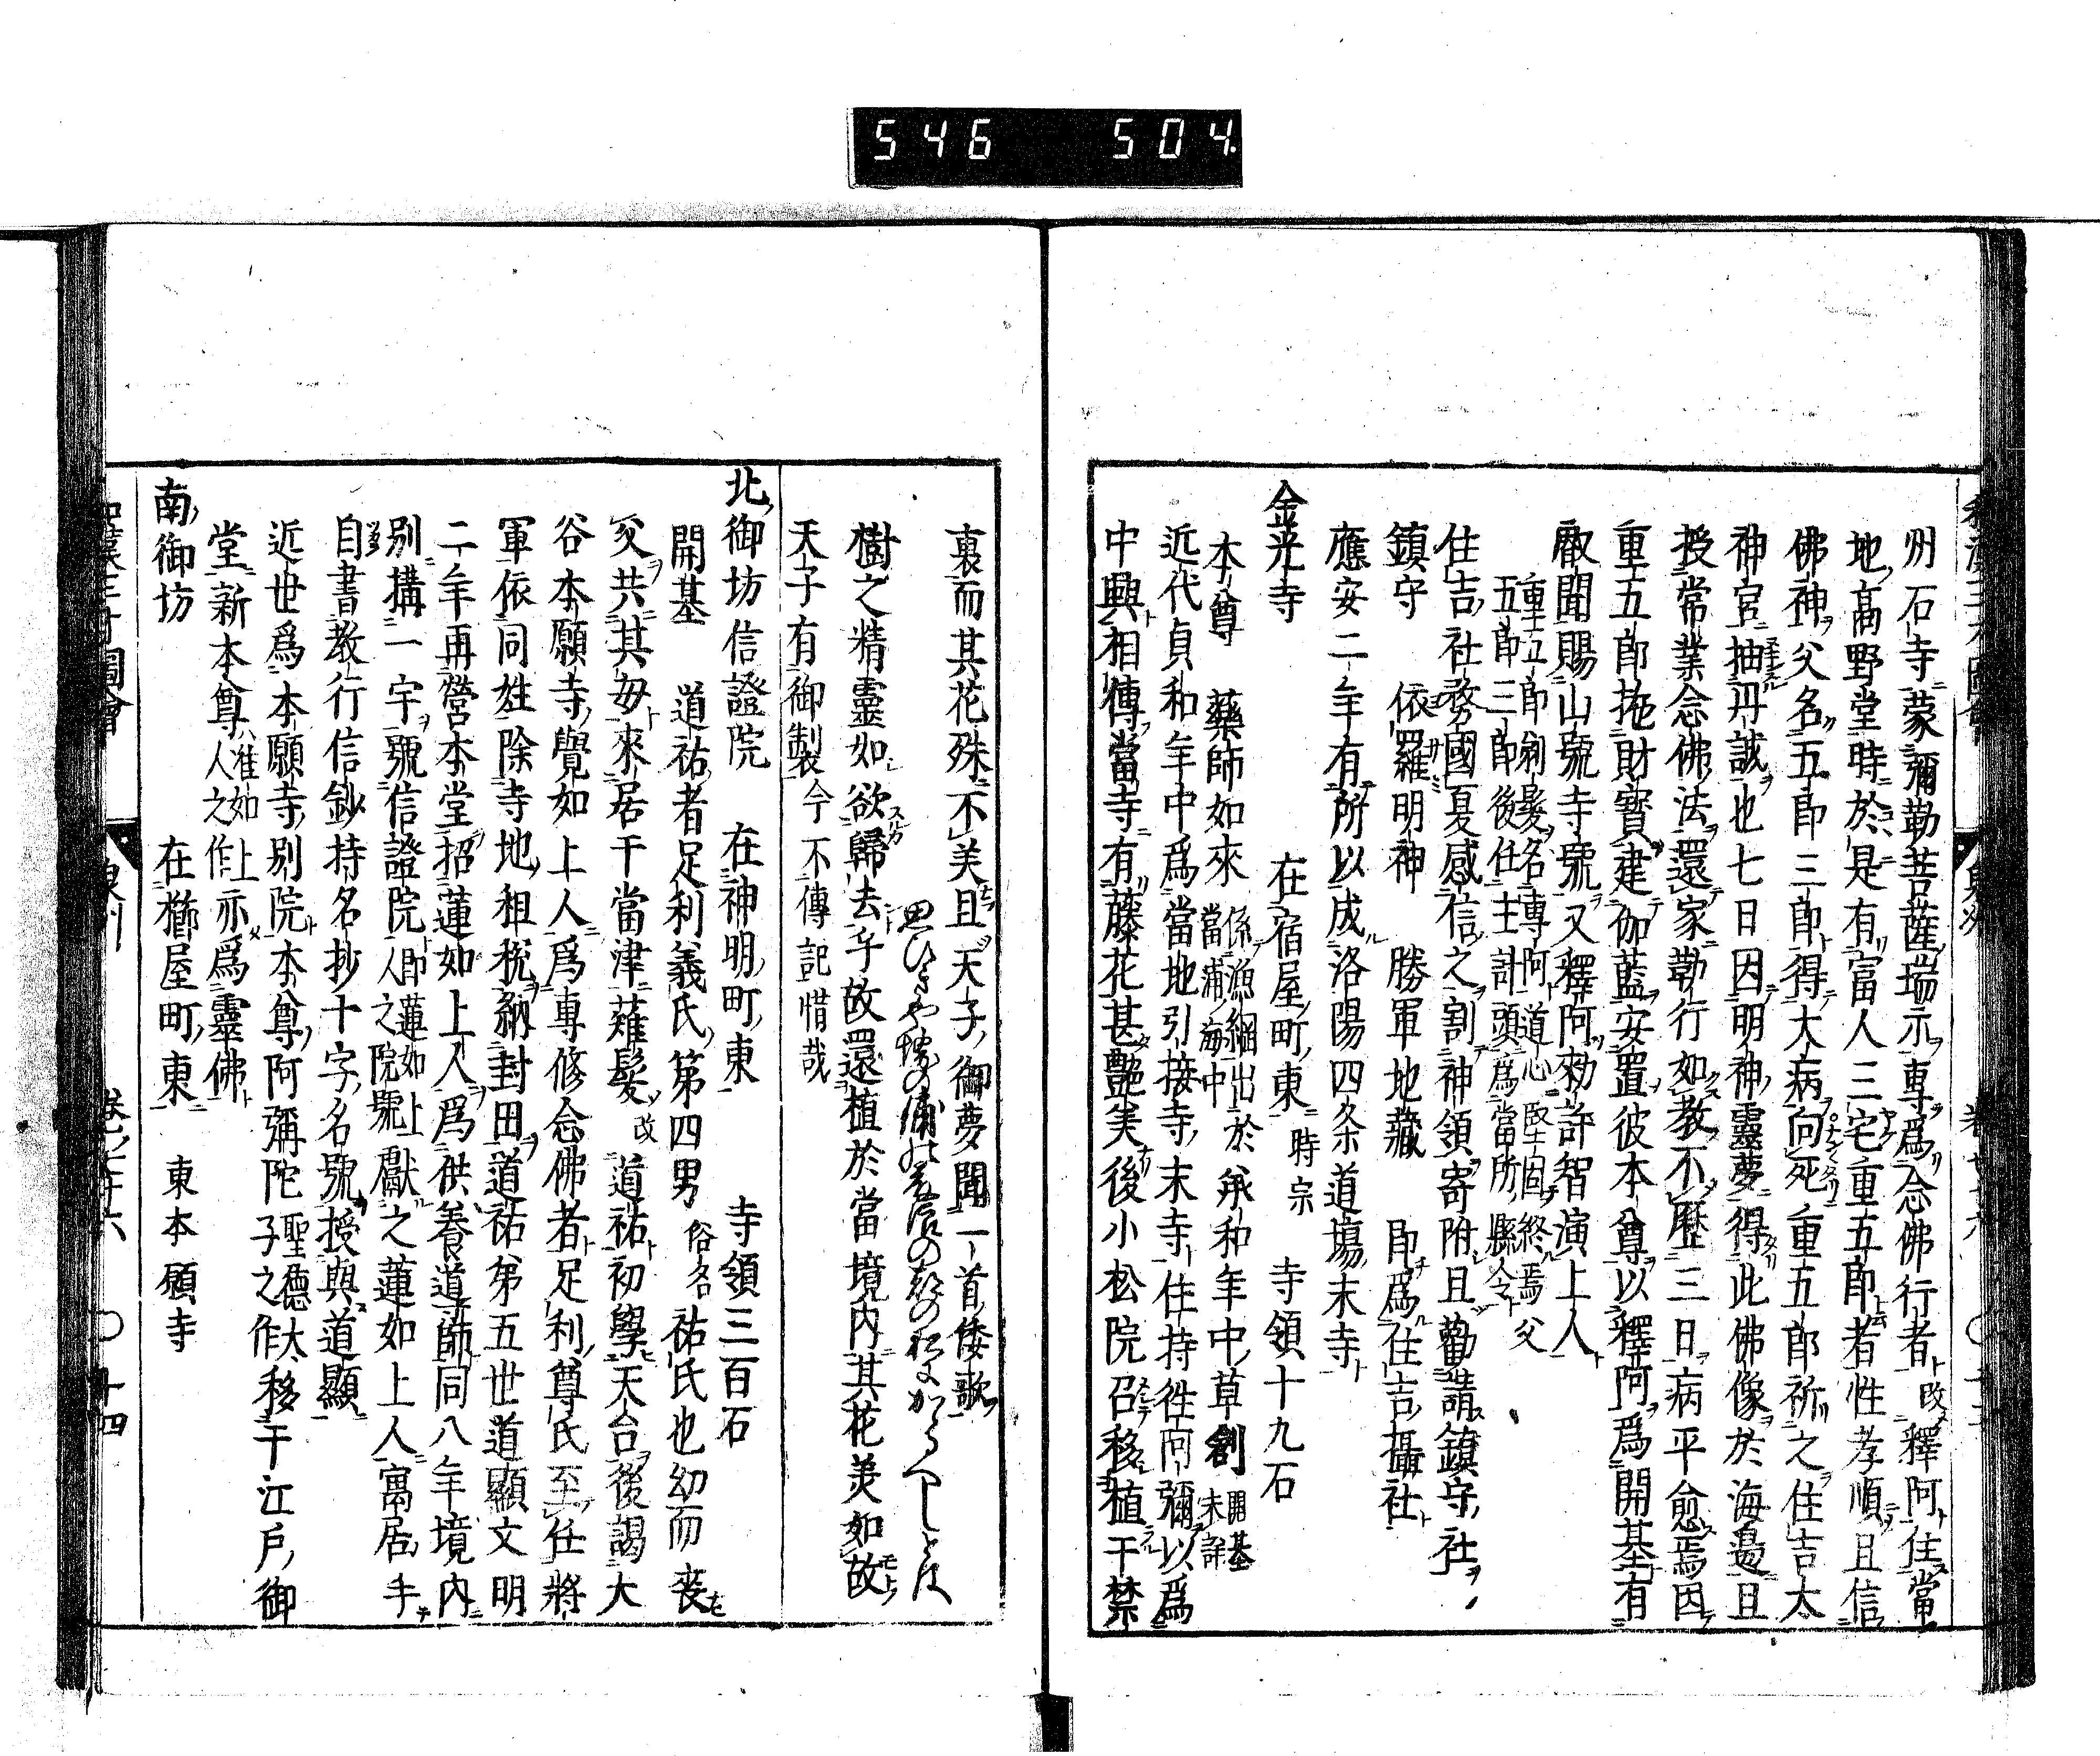 546 504.
州石寺蒙彌勒菩薩瑞示專爲念佛行者改釋阿住當
地高野堂時於是有富人三宅重五郎者性孝順且信
佛神父名五郎三郎得大病向死重五郎祈之住吉大
神宮抽丹誠也七日因明神靈夢得此佛像於海邊且
授常業念佛法還家勤行如教不歷三日病平愈焉因
重五郎抛財寳建伽藍安置彼本尊以釋阿爲開基有
叡聞賜山號寺號又釋阿勅許智演上人
重五郎剃髮名專阿道心堅固終焉父
五郎三郎後任主計頭爲當所縣令
住吉社務國夏感信之割神領寄附且勸請鎮守社
鎮守 依羅明神 勝軍地藏 即爲住吉攝社
應安二年有所以成洛陽四条道場末寺
金光寺 在宿屋町東 時宗 寺領十九石
本尊 藥師如來 係漁網出於當浦海中 承和年中草創 開基未詳
近代貞和年中爲當地引接寺末寺住持徃阿彌以爲
中興相傳當寺有藤花甚艶美後小松院召移植于禁
裏而其花殊不美且天子御夢聞一首倭歌
思ひきや堺の浦の藤浪の都の松にかゝるへしとは
樹之精靈如欲歸去乎故還植於當境内其花美如故
天子有御製今不傳記惜哉
北御坊信證院 在神明町東 寺領三百石
開基 道祐者足利義氏第四男 俗名 祐氏也幼而喪
父共其母來居于當津薙髮改道祐初學天台後謁大
谷本願寺覺如上人爲專修念佛者足利尊氏至任將
軍依同姓除寺地租税納封田道祐第五世道顯文明
二年再營本堂招蓮如上人爲供養道師同八年境内
別構一宇號信證院 即蓮如上人之院號 獻之蓮如上人寓居手
自書教行信鈔持名抄十字名號授與道顯
近世爲本願寺別院本尊阿彌陀 聖德太子之作 移于江戸御
堂新本尊 准如上人之作 亦爲靈佛
南御坊 在櫛屋町東 東本願寺
卷之七十六 〇十四